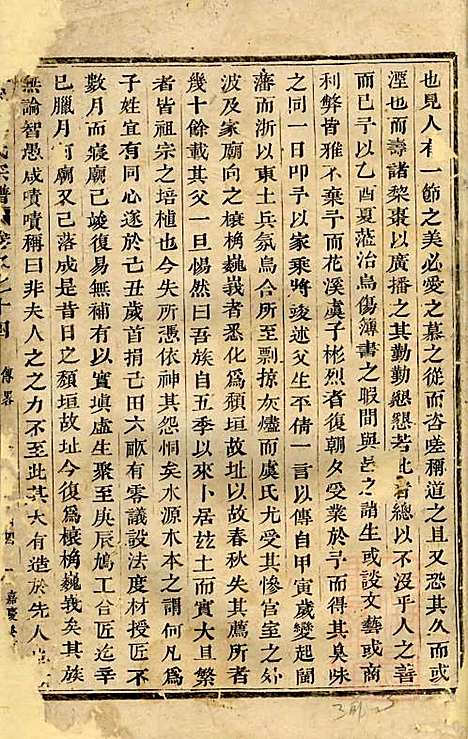 也見人有一節之美必愛之慕之從而咨嗟稱道之且又恐其久而或
湮也而壽諸梨棗以廣播之其勤勤懇懇若此者總以不沒乎人之善
而已予以乙酉夏蒞治烏傷簿書之暇間與邑之諸生或談文藝或商
利弊皆雅不棄予而花溪虞子彬烈者復朝夕受業於予而得其臭味
之同一日叩予以家乘將竣述父生平倩一言以傳自甲寅歲變起閩
藩而浙以東土兵氛烏合至剽掠灰燼而虞氏尤受其慘官室之外
波及家廟向之榱桷巍峩者悉化為頹垣故址以故春秋失其薦所者
幾十餘載其父一旦惕然曰吾族自五季以來卜居玆土而實大且繁
者皆祖宗之培植也今失所憑依神其怨恫矣水源木本之謂何凡為
子姓宜有同心遂於己丑歲首捐己田六畝有零議設法度材授匠不
數月而寢廟已竣復易無補有以實塡虗生聚至庚辰鳩工合匠迄辛
巳臘月而廟又已落成是昔日之頹垣故址今復為榱桷巍峩矣其族
無論智愚咸嘖嘖稱曰非夫人之之力不至此其大有造於先人
氏宗譜
傳畧
嘉慶